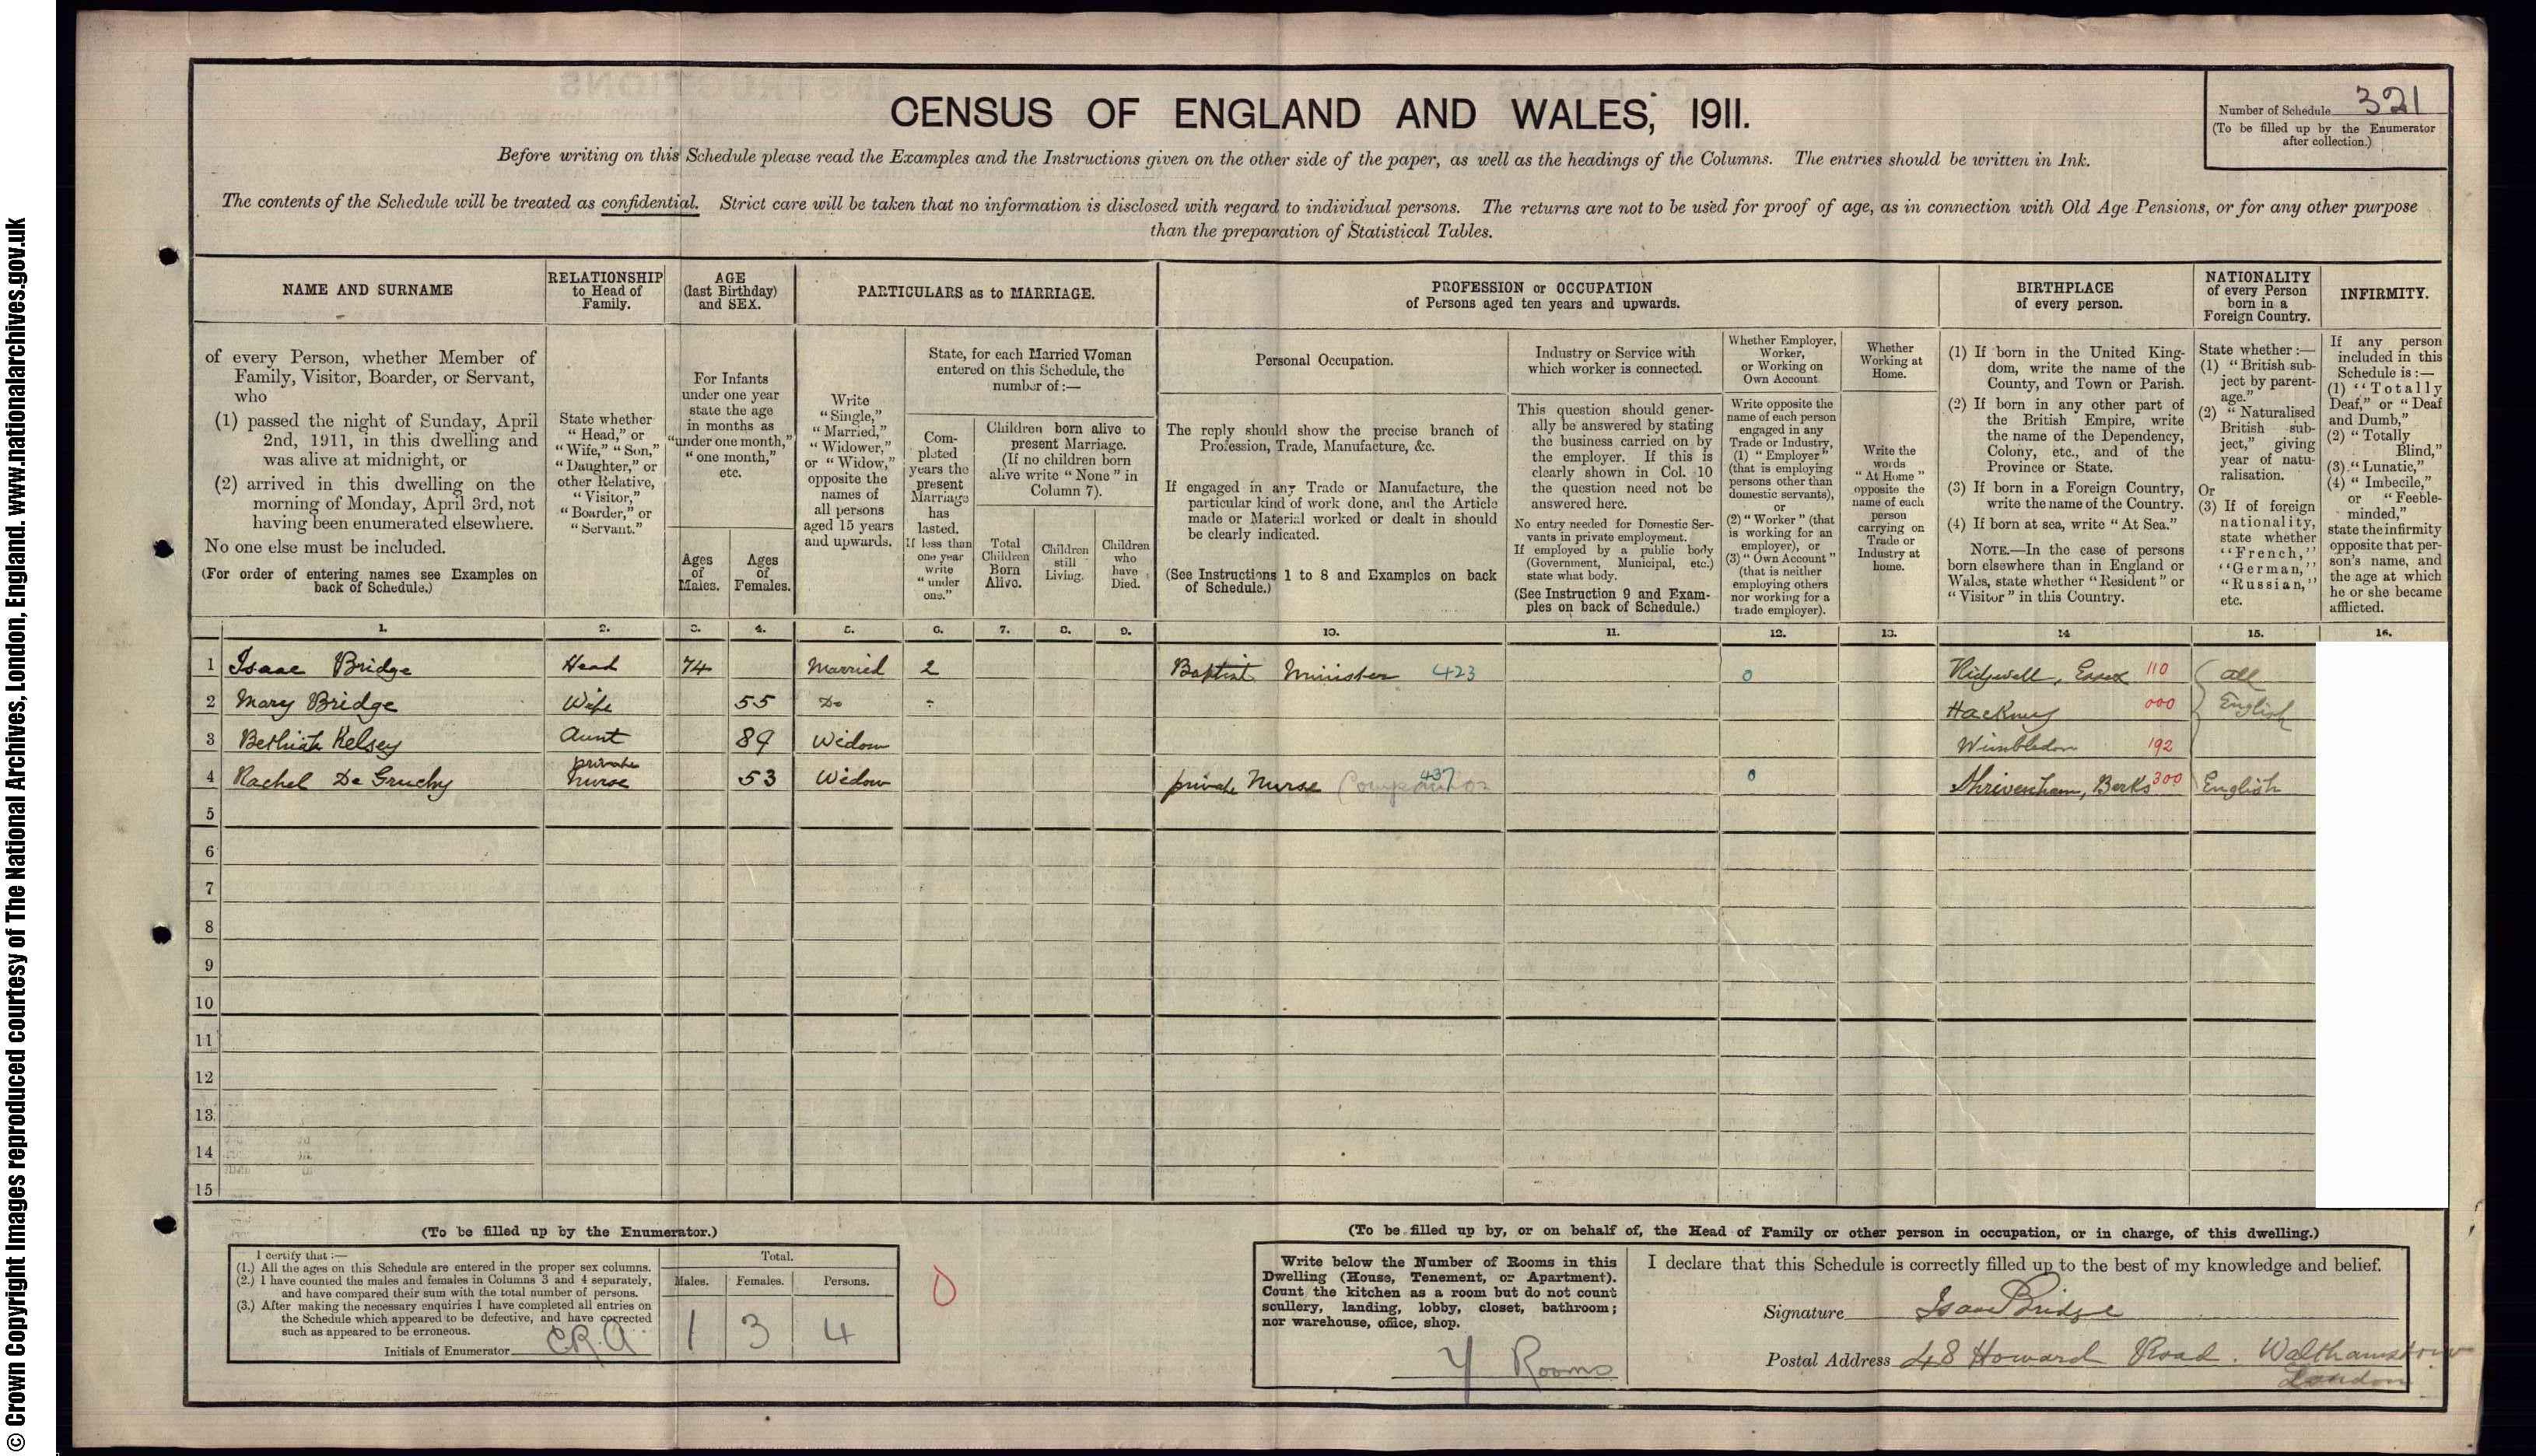 © Crown Copyright Images reproduced courtesy of The National Archives, London, England. www.nationalarchives.gov.uk
CENSUS OF ENGLAND AND WALES, 1911.
Number of Schedule 321
(To be filled up by the Enumerator after collection.)
Before writing on this Schedule please read the Examples and the Instructions given on the other side of the paper, as well as the headings of the Columns. The entries should be written in Ink.
The contents of the Schedule will be treated as confidential. Strict care will be taken that no information is disclosed with regard to individual persons. The returns are not to be used for proof of age, as in connection with Old Age Pensions, or for any other purpose
than the preparation of Statistical Tables.
NAME AND SURNAME
RELATIONSHIP
to Head of
Family.
AGE
(last Birthday)
and SEX.
PARTICULARS as to MARRIAGE.
PROFESSION or OCCUPATION
of Persons aged ten years and upwards.
BIRTHPLACE
of every person.
NATIONALITY
of every Person
born in a
Foreign Country.
INFIRMITY.
of every Person, whether Member of
Family, Visitor, Boarder, or Servant,
who
(1) passed the night of Sunday, April
2nd, 1911, in this dwelling and
was alive at midnight, or
(2) arrived in this dwelling on the
morning of Monday, April 3rd, not
having been enumerated elsewhere.
No one else must be included.
(For order of entering names see Examples on
back of Schedule.)
State whether
"Head," or
"Wife," "Son,"
"Daughter," or
other Relative,
"Visitor,"
"Boarder," or
"Servant."
For Infants
under one year
state the age
in months as
"under one month,"
"one month,"
etc.
Ages
of
Males.
Ages
of
Females.
Write
"Single,"
"Married,"
"Widower,"
or "Widow,"
opposite the
names of
all persons
aged 15 years
and upwards.
State, for each Married Woman
entered on this Schedule, the
number of :—
Completed
years the
present
Marriage
has
lasted.
If less than
one year
write
"under
one."
Children born alive to
present Marriage.
(If no children born
alive write "None" in
Column 7).
Total
Children
Born
Alive.
Children
still
Living.
Children
who
have
Died.
Personal Occupation.
The reply should show the precise branch of
Profession, Trade, Manufacture, &c.
If engaged in any Trade or Manufacture, the
particular kind of work done, and the Article
made or Material worked or dealt in should
be clearly indicated.
(See Instructions 1 to 8 and Examples on back
of Schedule.)
Industry or Service with
which worker is connected.
This question should gener-
ally be answered by stating
the business carried on by
the employer. If this is
clearly shown in Col. 10
the question need not be
answered here.
No entry needed for Domestic Ser-
vants in private employment.
If employed by a public body
(Government, Municipal, etc.)
state what body.
(See Instruction 9 and Exam-
ples on back of Schedule.)
Whether Employer,
Worker,
or Working on
Own Account
Write opposite the
name of each person
engaged in any
Trade or Industry,
(1) "Employer"
(that is employing
persons other than
domestic servants),
or
(2) "Worker" (that
is working for an
employer), or
(3) "Own Account"
(that is neither
employing others
nor working for a
trade employer).
Whether
Working at
Home.
Write the
words
"At Home"
opposite the
name of each
person
carrying on
Trade or
Industry at
home.
(1) If born in the United King-
dom, write the name of the
County, and Town or Parish.
(2) If born in any other part of
the British Empire, write
the name of the Dependency,
Colony, etc., and of the
Province or State.
(3) If born in a Foreign Country,
write the name of the Country.
(4) If born at sea, write "At Sea."
NOTE.—In the case of persons
born elsewhere than in England or
Wales, state whether "Resident" or
"Visitor" in this Country.
State whether :—
(1) "British sub-
ject by parent-
age."
(2) "Naturalised
British sub-
ject," giving
year of natu-
ralisation.
Or
(3) If of foreign
nationality,
state whether
"French,"
"German,"
"Russian,"
etc.
If any person
included in this
Schedule is :—
(1) "Totally
Deaf," or "Deaf
and Dumb,"
(2) "Totally
Blind,"
(3) "Lunatic,"
(4) "Imbecile,"
or "Feeble-
minded,"
state the infirmity
opposite that per-
son's name, and
the age at which
he or she became
afflicted.
1. 2. 3. 4. 5. 6. 7. 8. 9. 10. 11. 12. 13. 14 15. 16.
1 Isaac Bridge Head 74 Married 2 Baptist Minister 423 0 Ridgwell, Essex 110 all
2 Mary Bridge Wife 55 Do Hackney 000 English
3 Bethiah Kelsey Aunt 89 Widow Wimbledon 192
4 Rachel De Gruchy private Nurse 53 Widow private Nurse 437 0 Shrivenham, Berks 300 English
5
6
7
8
9
10
11
12
13
14
15
(To be filled up by the Enumerator.)
I certify that :—
(1.) All the ages on this Schedule are entered in the proper sex columns.
(2.) I have counted the males and females in Columns 3 and 4 separately,
and have compared their sum with the total number of persons.
(3.) After making the necessary enquiries I have completed all entries on
the Schedule which appeared to be defective, and have corrected
such as appeared to be erroneous.
Initials of Enumerator
Total.
Males. Females. Persons.
1 3 4
0
(To be filled up by, or on behalf of, the Head of Family or other person in occupation, or in charge, of this dwelling.)
Write below the Number of Rooms in this
Dwelling (House, Tenement, or Apartment).
Count the kitchen as a room but do not count
scullery, landing, lobby, closet, bathroom;
nor warehouse, office, shop.
7 Rooms
I declare that this Schedule is correctly filled up to the best of my knowledge and belief.
Signature Isaac Bridge
Postal Address 48 Howard Road. Walthamstow
London